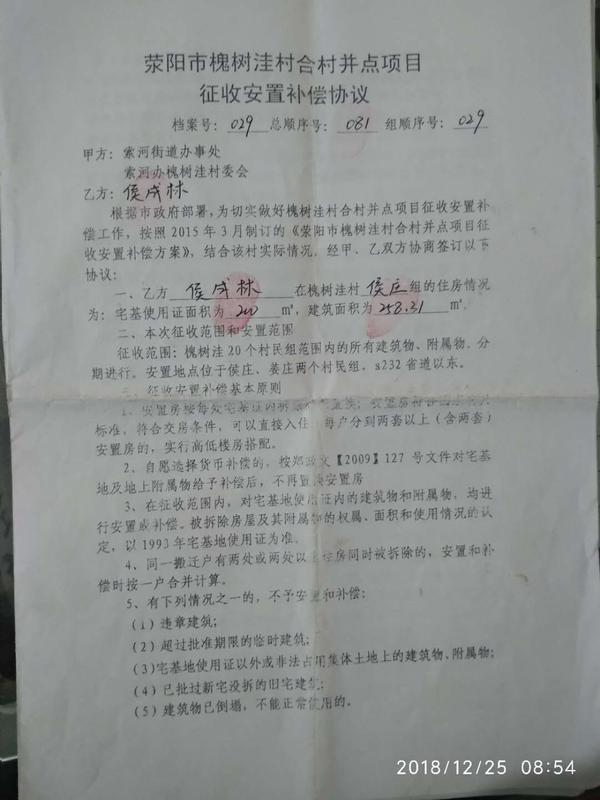 荥阳市槐树洼村合村并点项目
征收安置补偿协议
档案号：029 总顺序号：081 组顺序号：029
甲方：索河街道办事处
索河办槐树洼村委会
乙方：侯成林
根据市政府部署，为切实做好槐树洼村合村并点项目征收安置补
偿工作，按照2015年3月制订的《荥阳市槐树洼村合村并点项目征
收安置补偿方案》，结合该村实际情况，经甲、乙双方协商签订以下
协议：
一、乙方 侯成林 在槐树洼村 侯庄 组的住房情况
为：宅基使用证面积为 200 ㎡，建筑面积为 258.31 ㎡。
二、本次征收范围和安置范围
征收范围：槐树洼20个村民组范围内的所有建筑物、附属物。分
期进行。安置地点位于侯庄、姜庄两个村民组，s232省道以东。
三、征收安置补偿基本原则
1、安置房按每处宅基证内拆
标准，符合交房条件，可以直接入住。每户分到两套以上（含两套）
安置房的，实行高低楼房搭配。
2、自愿选择货币补偿的，按郑政文【2009】127号文件对宅基
地及地上附属物给予补偿后，不再置换安置房
3、在征收范围内，对宅基地使用证内的建筑物和附属物，均进
行安置或补偿。被拆除房屋及其附属物的权属、面积和使用情况的认
定，以1993年宅基地使用证为准。
4、同一搬迁户有两处或两处以上住房同时被拆除的，安置和补
偿时按一户合并计算。
5、有下列情况之一的，不予安置和补偿：
（1）违章建筑；
（2）超过批准期限的临时建筑；
（3）宅基地使用证以外或非法占用集体土地上的建筑物、附属物；
（4）已批过新宅没拆的旧宅建筑；
（5）建筑物已倒塌，不能正常使用的。
2018/12/25 08:54